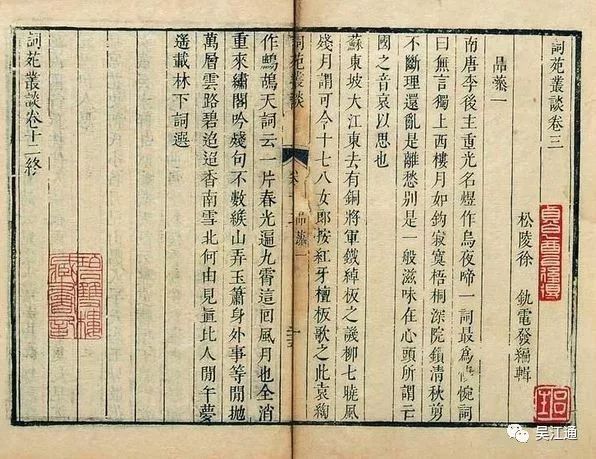 詞苑叢談卷三
松陵徐 釚電發編輯
品藻一
南唐李後主重光名煜作烏夜啼一詞最爲悽惋詞
曰無言獨上西樓月如鉤寂寞梧桐深院鎖清秋剪
不斷理還亂是離愁別是一般滋味在心頭所謂亡
國之音哀以思也
蘇東坡大江東去有銅將軍鐵綽板之譏柳七曉風
殘月謂可令十七八女郎按紅牙檀板歌之此袁綯
詞苑叢談 卷三 品藻一
作鷓鴣天詞云一片春光遍九霄這回風月也全消
重來繡閣吟殘句不數緱山弄玉簫身外事等閒拋
萬層雲路碧迢迢香南雪北何由見眞比人間午夢
遥載林下詞選
詞苑叢談卷十二終
吴江通